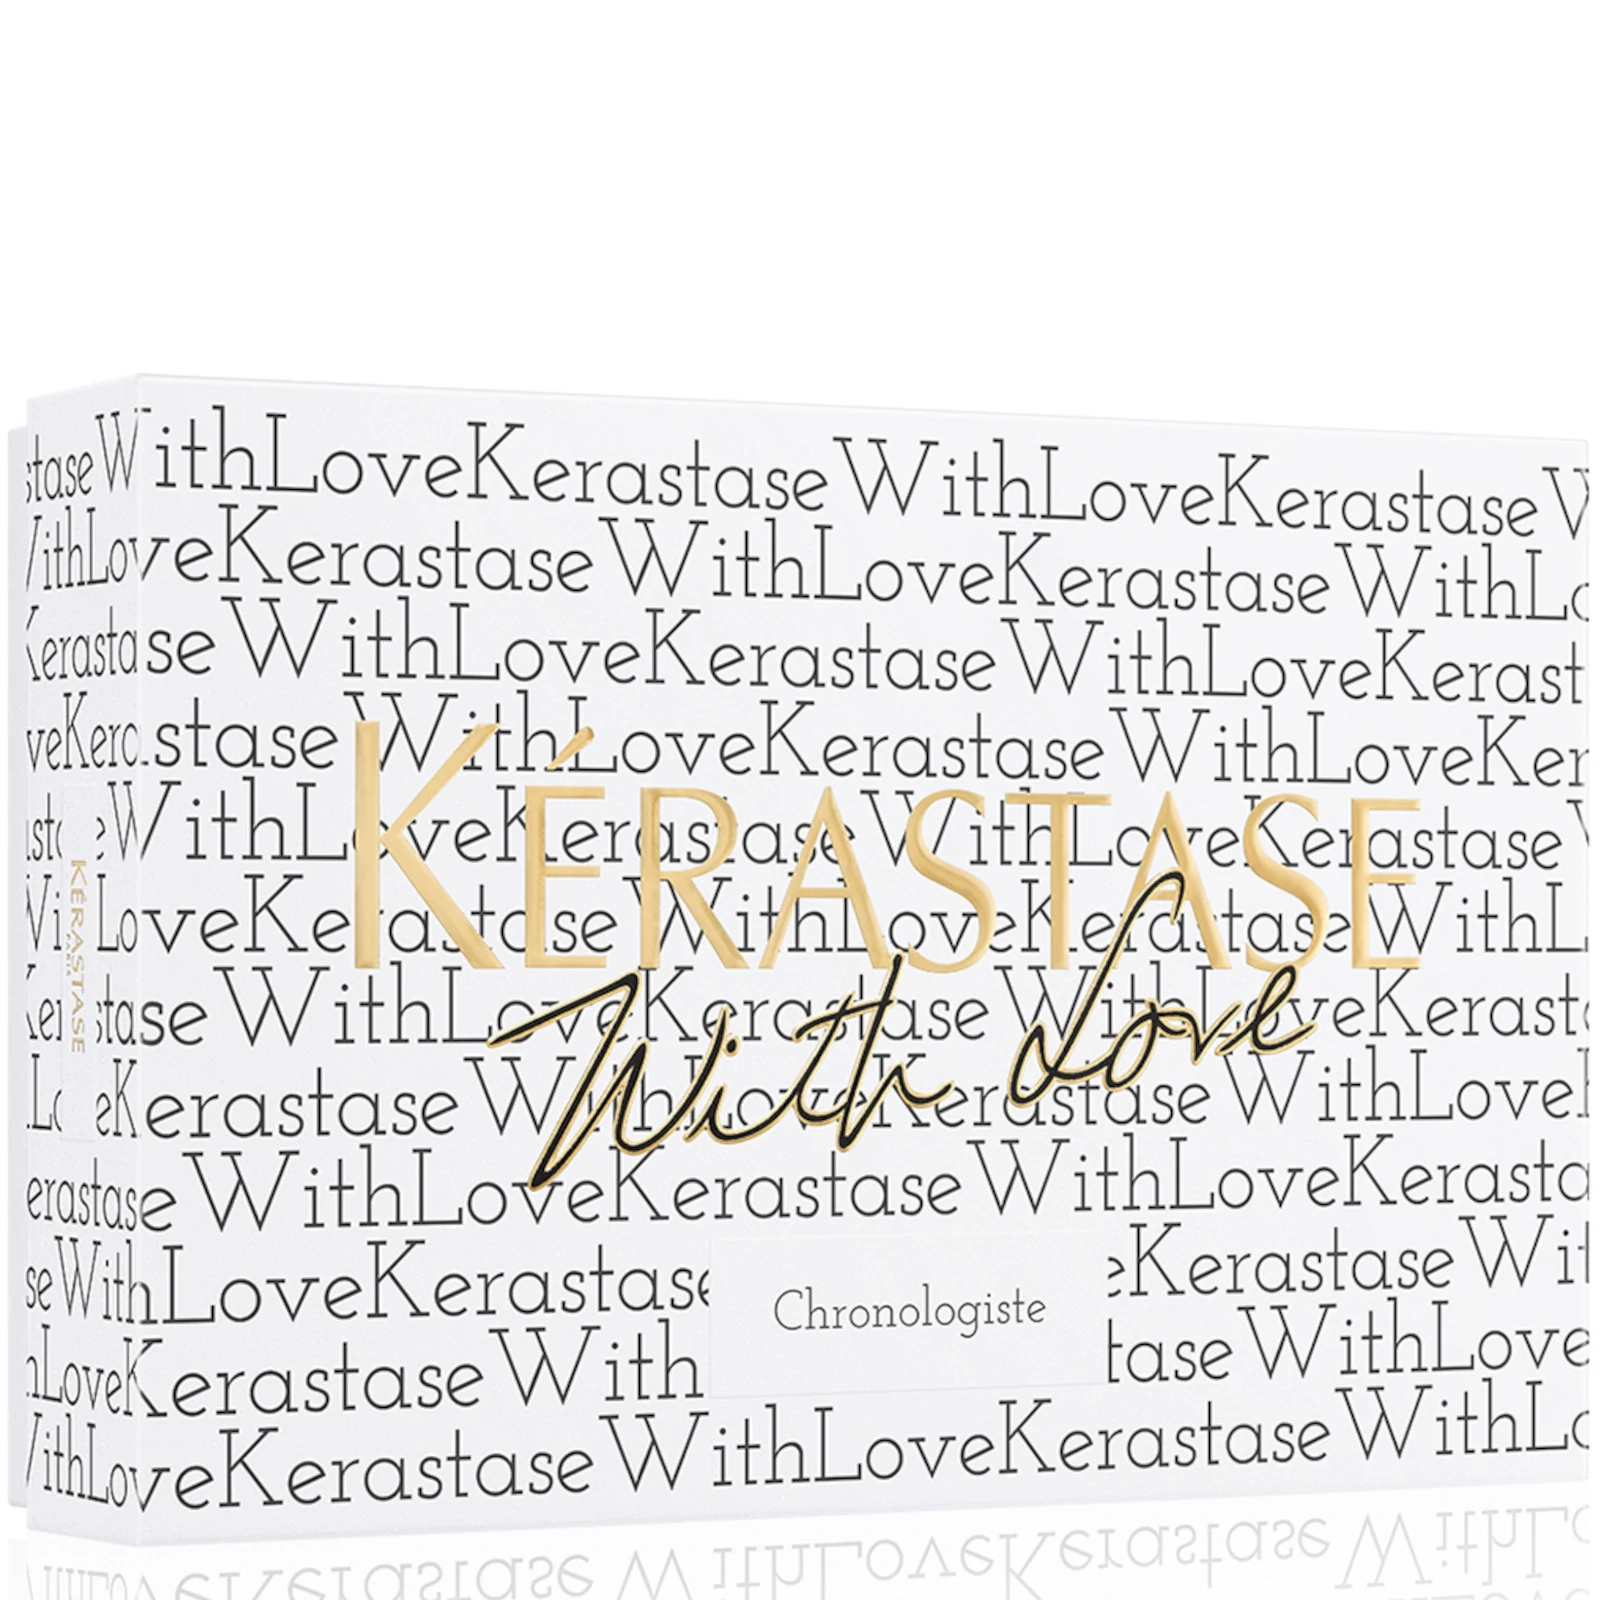 stase WithLoveKerastase WithLoveKerastase W
WithLoveKerastase WithLoveKerastase WithLo
Kerastase WithLoveKerastase WithLoveKerast
veKerastase WithLoveKerastase WithLoveKer
KÉRASTASE
WithLoveKerastase WithLoveKerastase
With Love
LoveKerastase WithLoveKerastase WithL
Kerastase WithLoveKerastase WithLoveKerasta
eKerastase WithLoveKerastase WithLove
erastase WithLoveKerastase WithLoveKerasta
se WithLoveKerastase
eKerastase Wit
Chronologiste
hLoveKerastase With
tase WithLove
WithLoveKerastase WithLoveKerastase WithLo
KÉRASTASE
PARIS